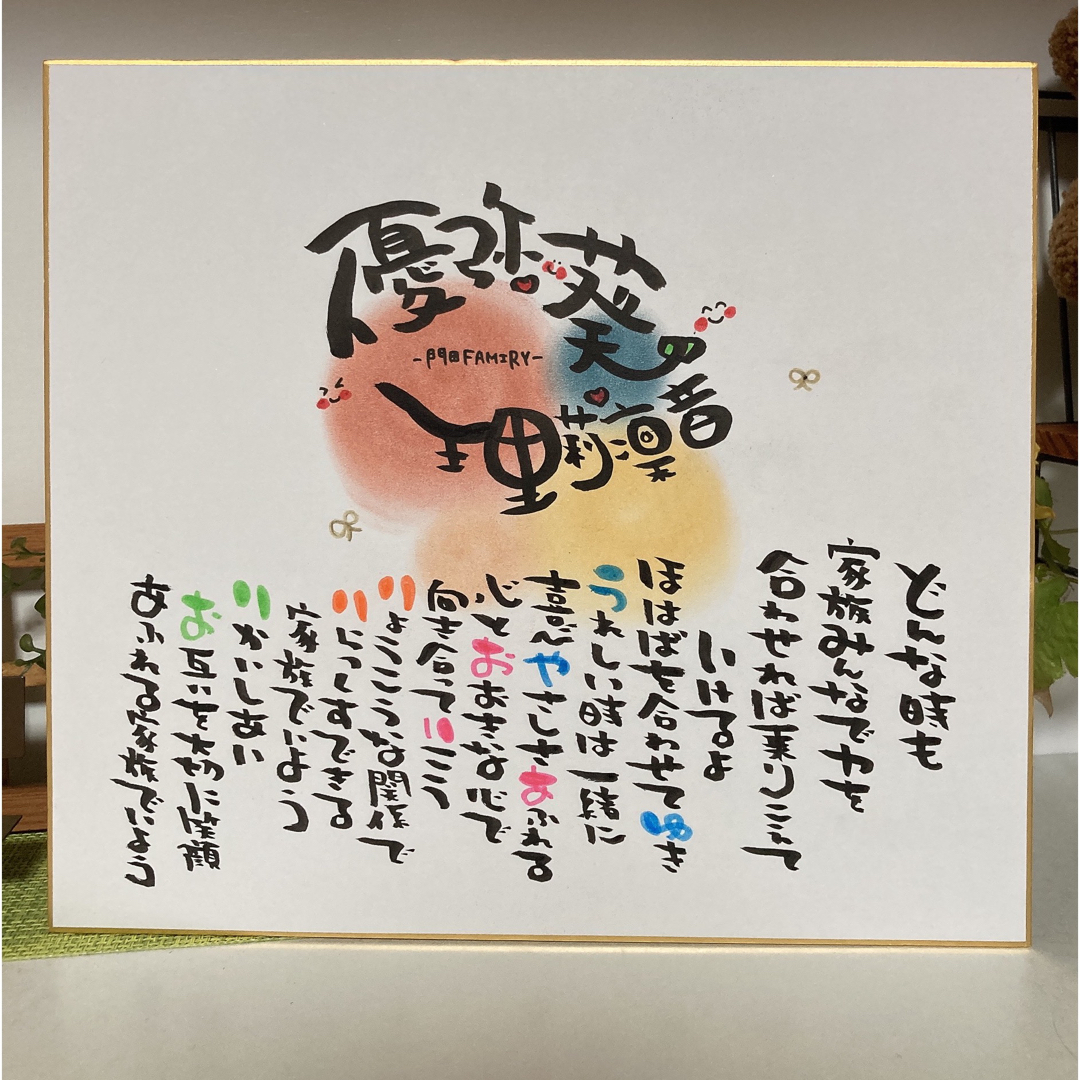 優弥 葵
天音
-門田FAMIRY-
理莉凛
どんな時も
家族みんなで力を
合わせれば乗りこえて
いけるよ
ほはばを合わせてゆき
うれしい時は一緒に
喜びやさしさあふれる
心とおおきな心で
向き合っていこう
りょうこうな関係で
りにっしすできる
家族でいよう
りかいしあい
お互いを大切に笑顔
あふれる家族でいよう